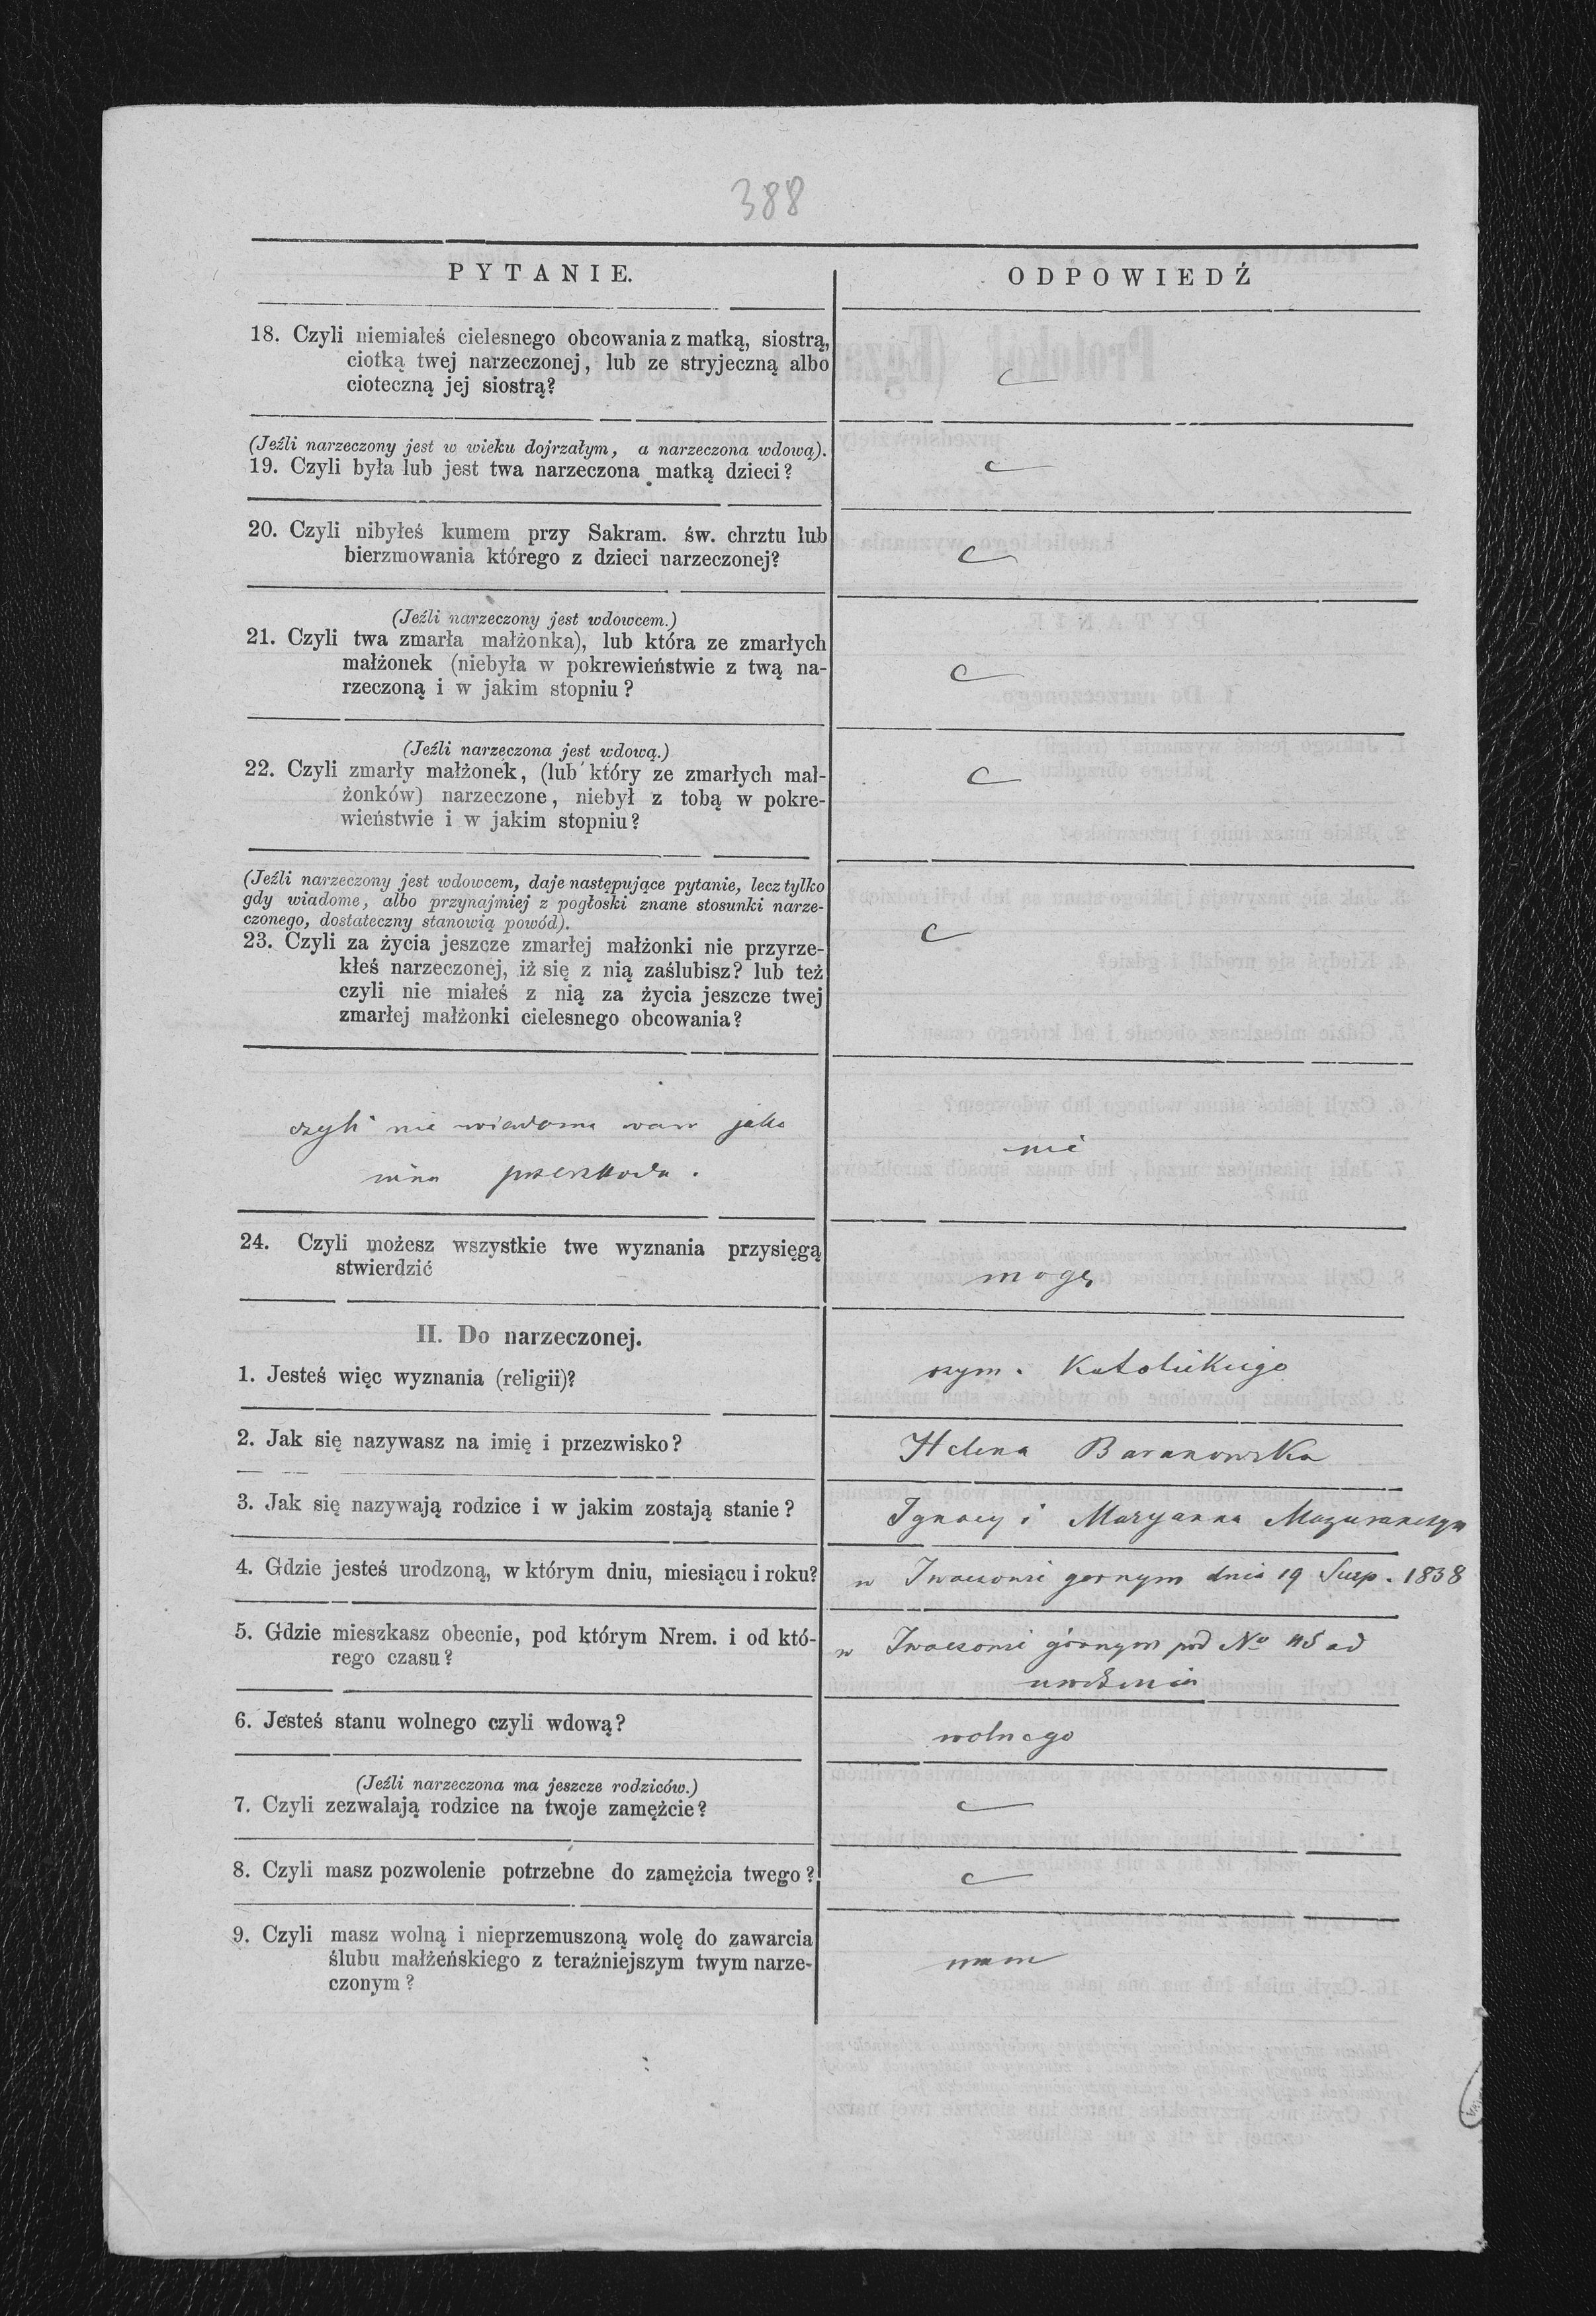 388
PYTANIE.
ODPOWIEDŹ
18. Czyli niemiałeś cielesnego obcowania z matką, siostrą,
ciotką twej narzeczonej, lub ze stryjeczną albo
cioteczną jej siostrą?
(Jeźli narzeczony jest w wieku dojrzałym, a narzeczona wdową).
19. Czyli była lub jest twa narzeczona matką dzieci?
20. Czyli nibyłeś kumem przy Sakram. św. chrztu lub
bierzmowania którego z dzieci narzeczonej?
(Jeźli narzeczony jest wdowcem.)
21. Czyli twa zmarła małżonka), lub która ze zmarłych
małżonek (niebyła w pokrewieństwie z twą na-
rzeczoną i w jakim stopniu?
(Jeźli narzeczona jest wdową.)
22. Czyli zmarły małżonek, (lub który ze zmarłych mał-
żonków) narzeczone, niebył z tobą w pokre-
wieństwie i w jakim stopniu?
(Jeźli narzeczony jest wdowcem, daje następujące pytanie, lecz tylko
gdy wiadome, albo przynajmiej z pogłoski znane stosunki narze-
czonego, dostateczny stanowią powód).
23. Czyli za życia jeszcze zmarłej małżonki nie przyrze-
kłeś narzeczonej, iż się z nią zaślubisz? lub też
czyli nie miałeś z nią za życia jeszcze twej
zmarłej małżonki cielesnego obcowania?
czyli nie wiadoma wam jaka
inna przeszkoda.
nie
24. Czyli możesz wszystkie twe wyznania przysięgą
stwierdzić
mogę
II. Do narzeczonej.
1. Jesteś więc wyznania (religii)?
rzym. Katolickiego
2. Jak się nazywasz na imię i przezwisko?
Helena Baranowska
3. Jak się nazywają rodzice i w jakim zostają stanie?
Ignacy i Maryanna
4. Gdzie jesteś urodzoną, w którym dniu, miesiącu i roku?
w górnym dnia 19 Sierp. 1838
5. Gdzie mieszkasz obecnie, pod którym Nrem. i od któ-
rego czasu?
w górnym pod No 45 od
urodzenia
6. Jesteś stanu wolnego czyli wdową?
wolnego
(Jeźli narzeczona ma jeszcze rodziców.)
7. Czyli zezwalają rodzice na twoje zamężcie?
8. Czyli masz pozwolenie potrzebne do zamężcia twego?
9. Czyli masz wolną i nieprzemuszoną wolę do zawarcia
ślubu małżeńskiego z teraźniejszym twym narze-
czonym?
mam